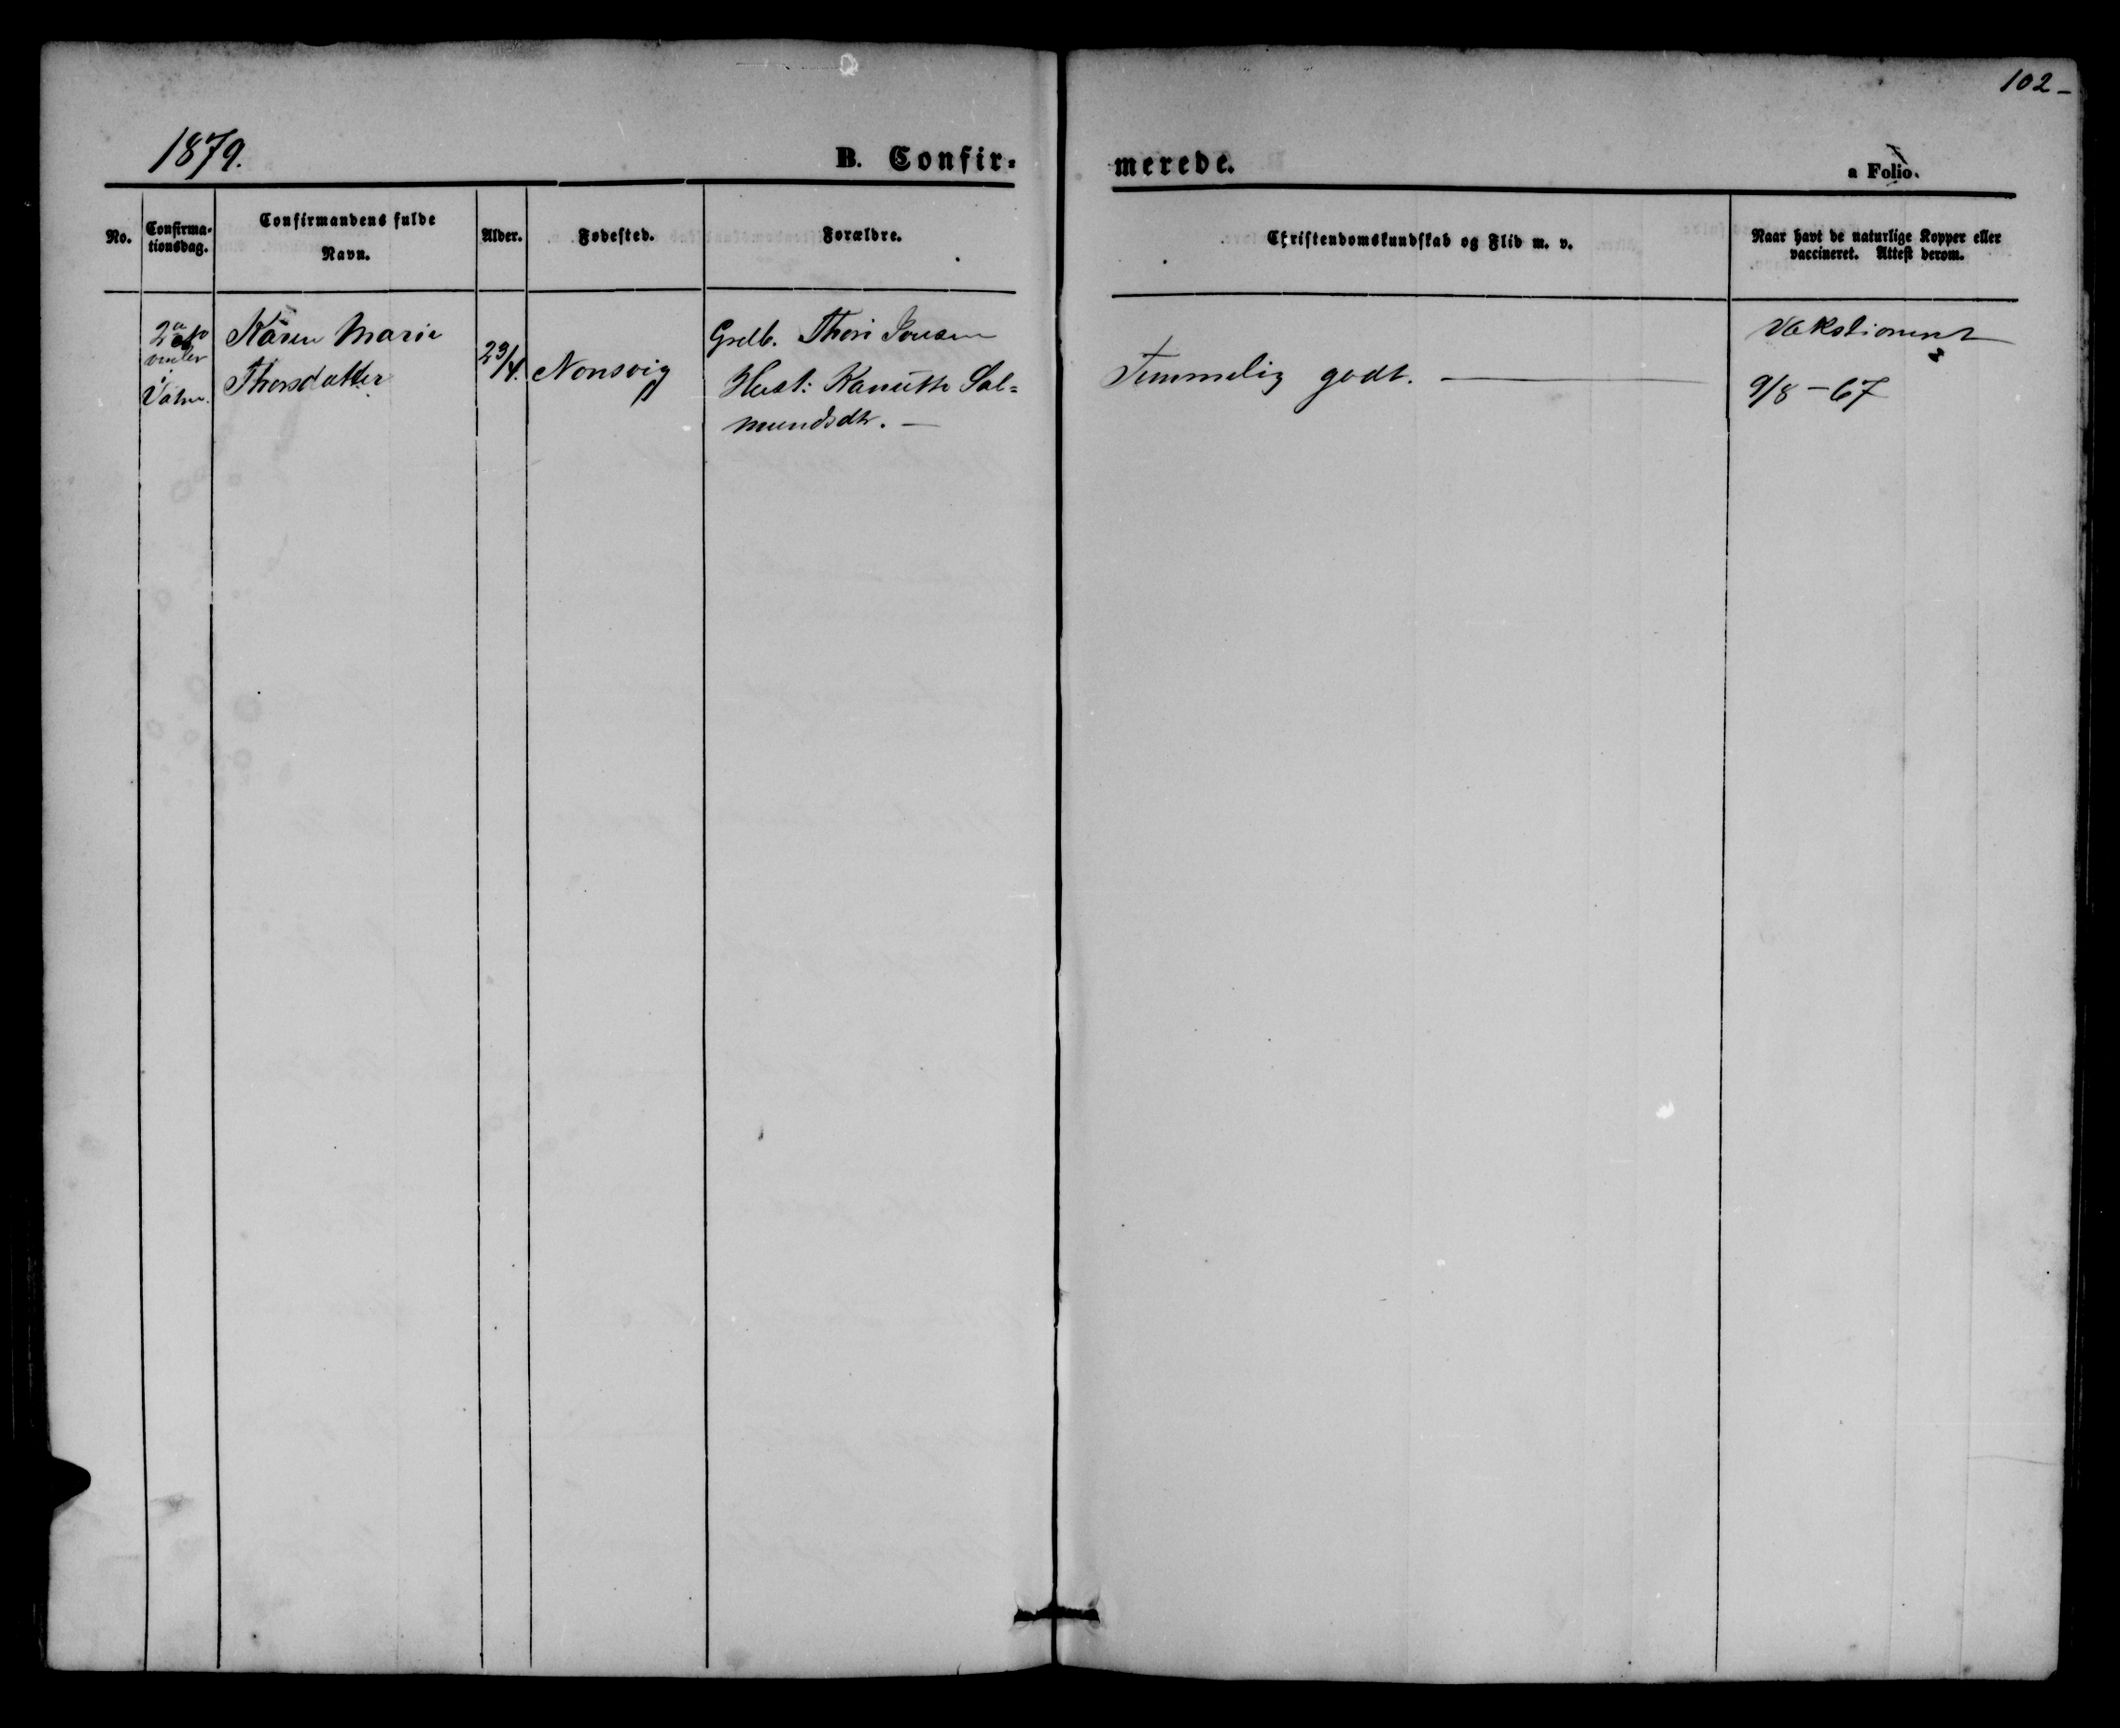 102-
1879.
B. Confir-
merede.
a Folio.
No.
Confirma-
tionsdag.
Confirmandens fulde
Navn.
Alder.
Fødested.
Forældre.
Christendomskundskab og Flid m. v.
Naar havt de naturlige Kopper eller
vaccineret. Attest derom.
Karen Marie
Thorsdatter
Nonsvig
Thore
Hust: Sal-
mundsdtr. -
Temmelig godt. -
9/8 - 67